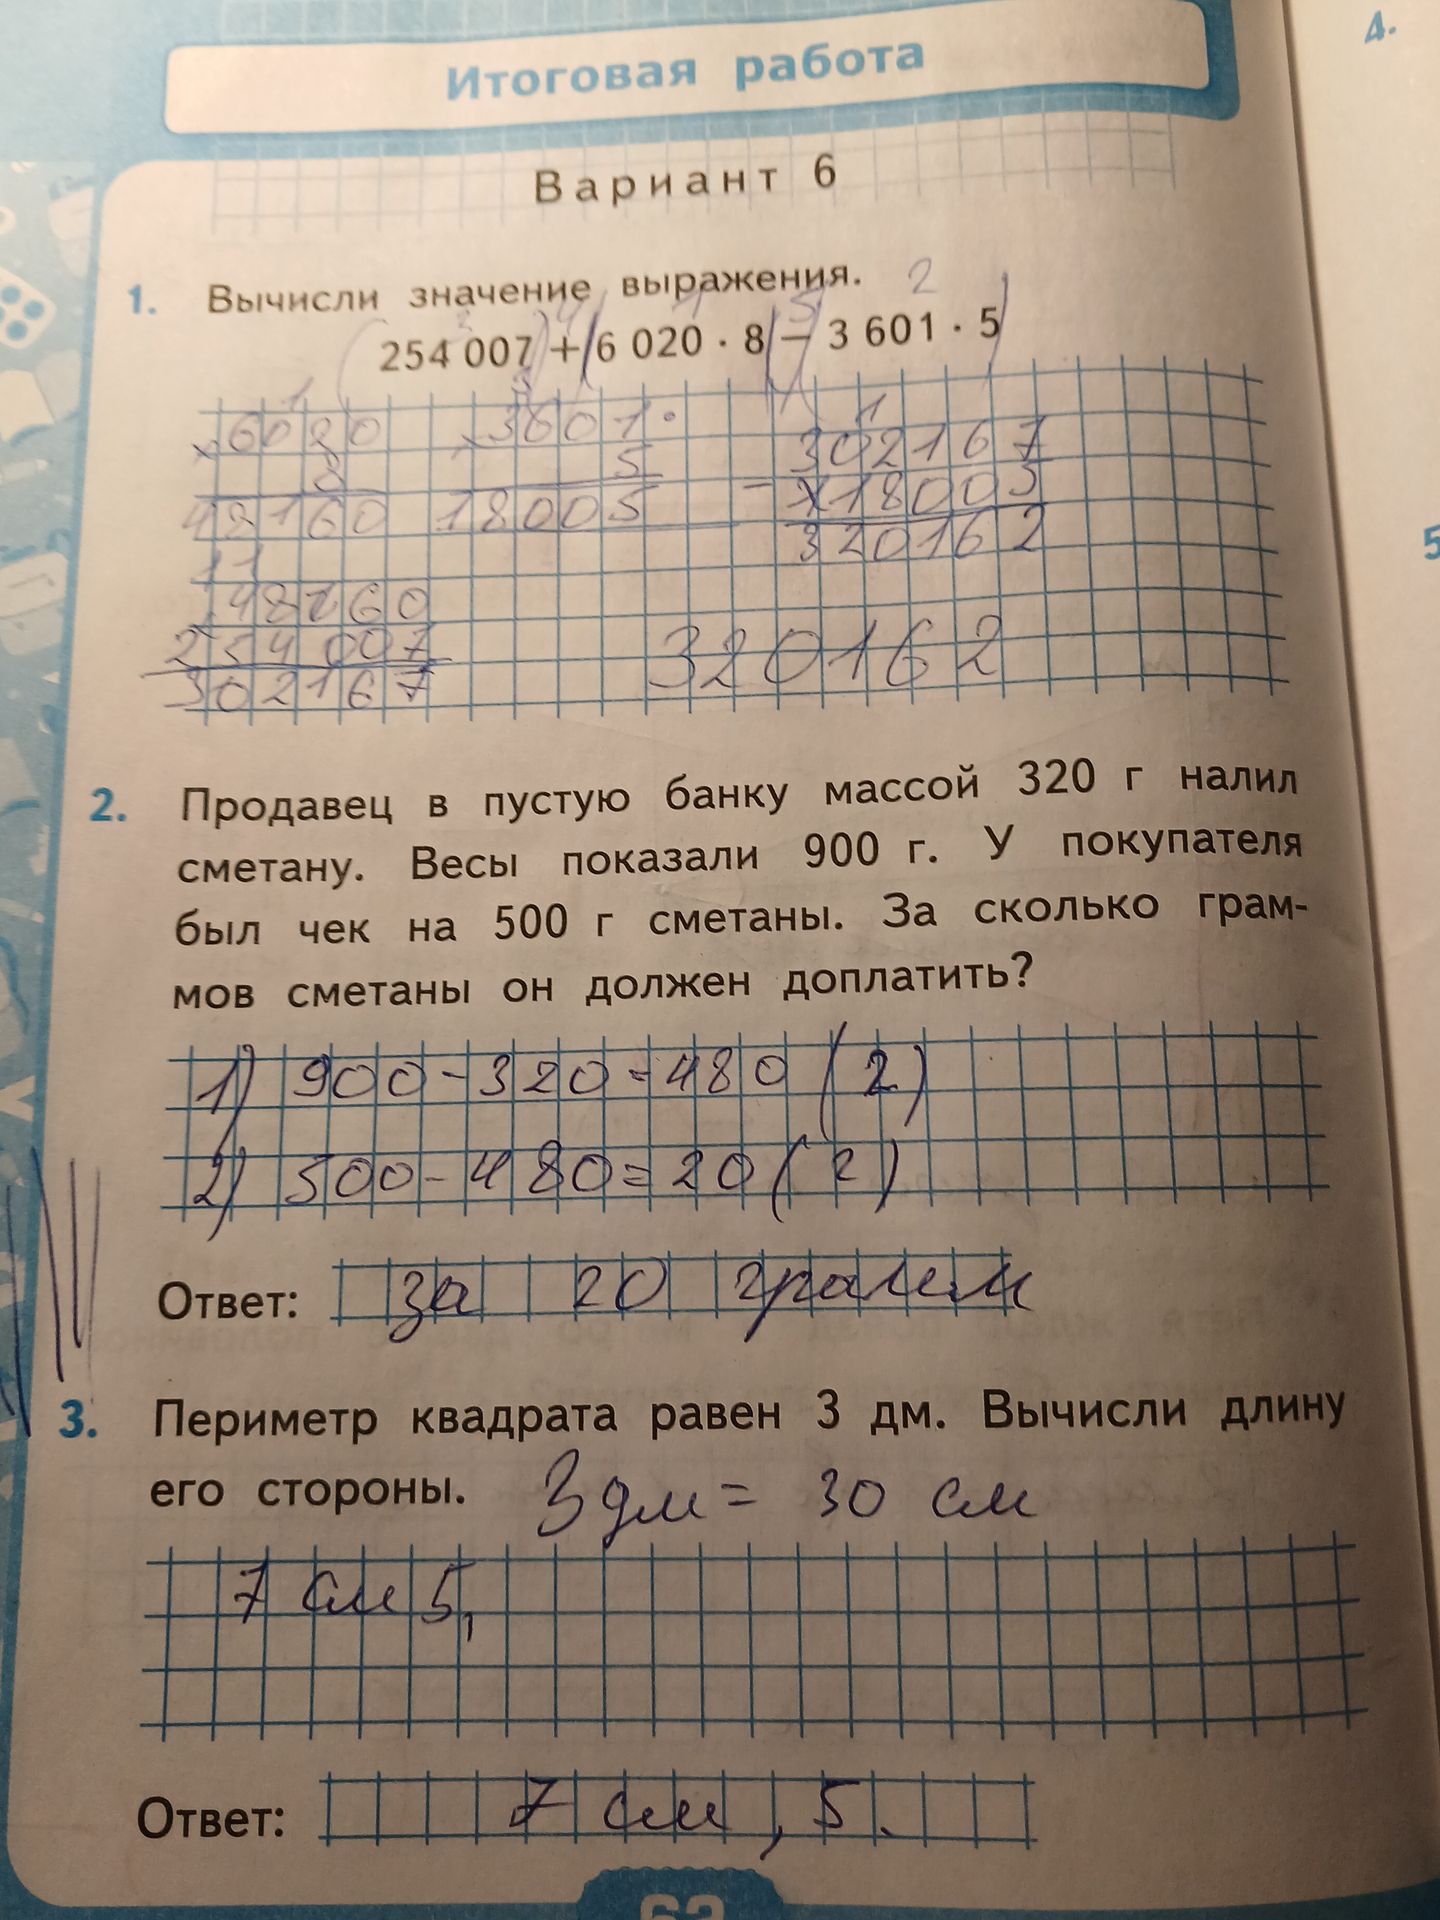 4.
Итоговая работа
Вариант 6
1. Вычисли значение выражения. 2
254 007 + 6 020 · 8 - 3 601 · 5
6020
8
48160
3601
5
18005
302167
- 18005
320162
11
48160
254007
302167
320162
5
2. Продавец в пустую банку массой 320 г налил
сметану. Весы показали 900 г. У покупателя
был чек на 500 г сметаны. За сколько грам-
мов сметаны он должен доплатить?
1) 900-320=480 (г)
2) 500-480=20 (г)
Ответ: за 20 грамм
3. Периметр квадрата равен 3 дм. Вычисли длину
его стороны. 3 дм = 30 см
7 см 5,
Ответ: 7 см, 5.
63